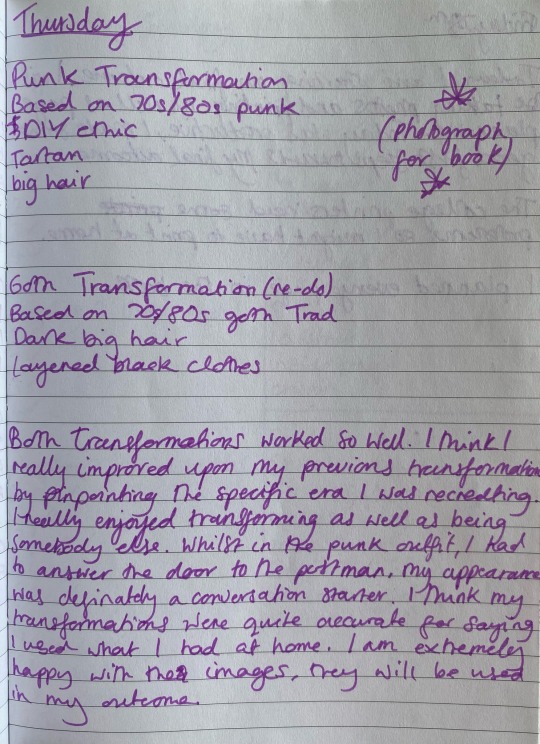 Thursday
Punk Transformation
Based on 70s/80s punk
DIY ethic
Tartan
big hair
(photograph
for book)
Goth Transformation (re-do)
Based on 70s/80s goth Trad
Dark big hair
Layered black clothes
Both transformations worked so well. I think I
really improved upon my previous transformation
by pinpointing the specific era I was recreating.
I really enjoyed transforming as well as being
somebody else. Whilst in the punk outfit, I had
to answer the door to the postman, my appearance
was definately a conversation starter. I think my
transformations were quite accurate for saying
I used what I had at home. I am extremely
happy with these images, they will be used
in my outcome.